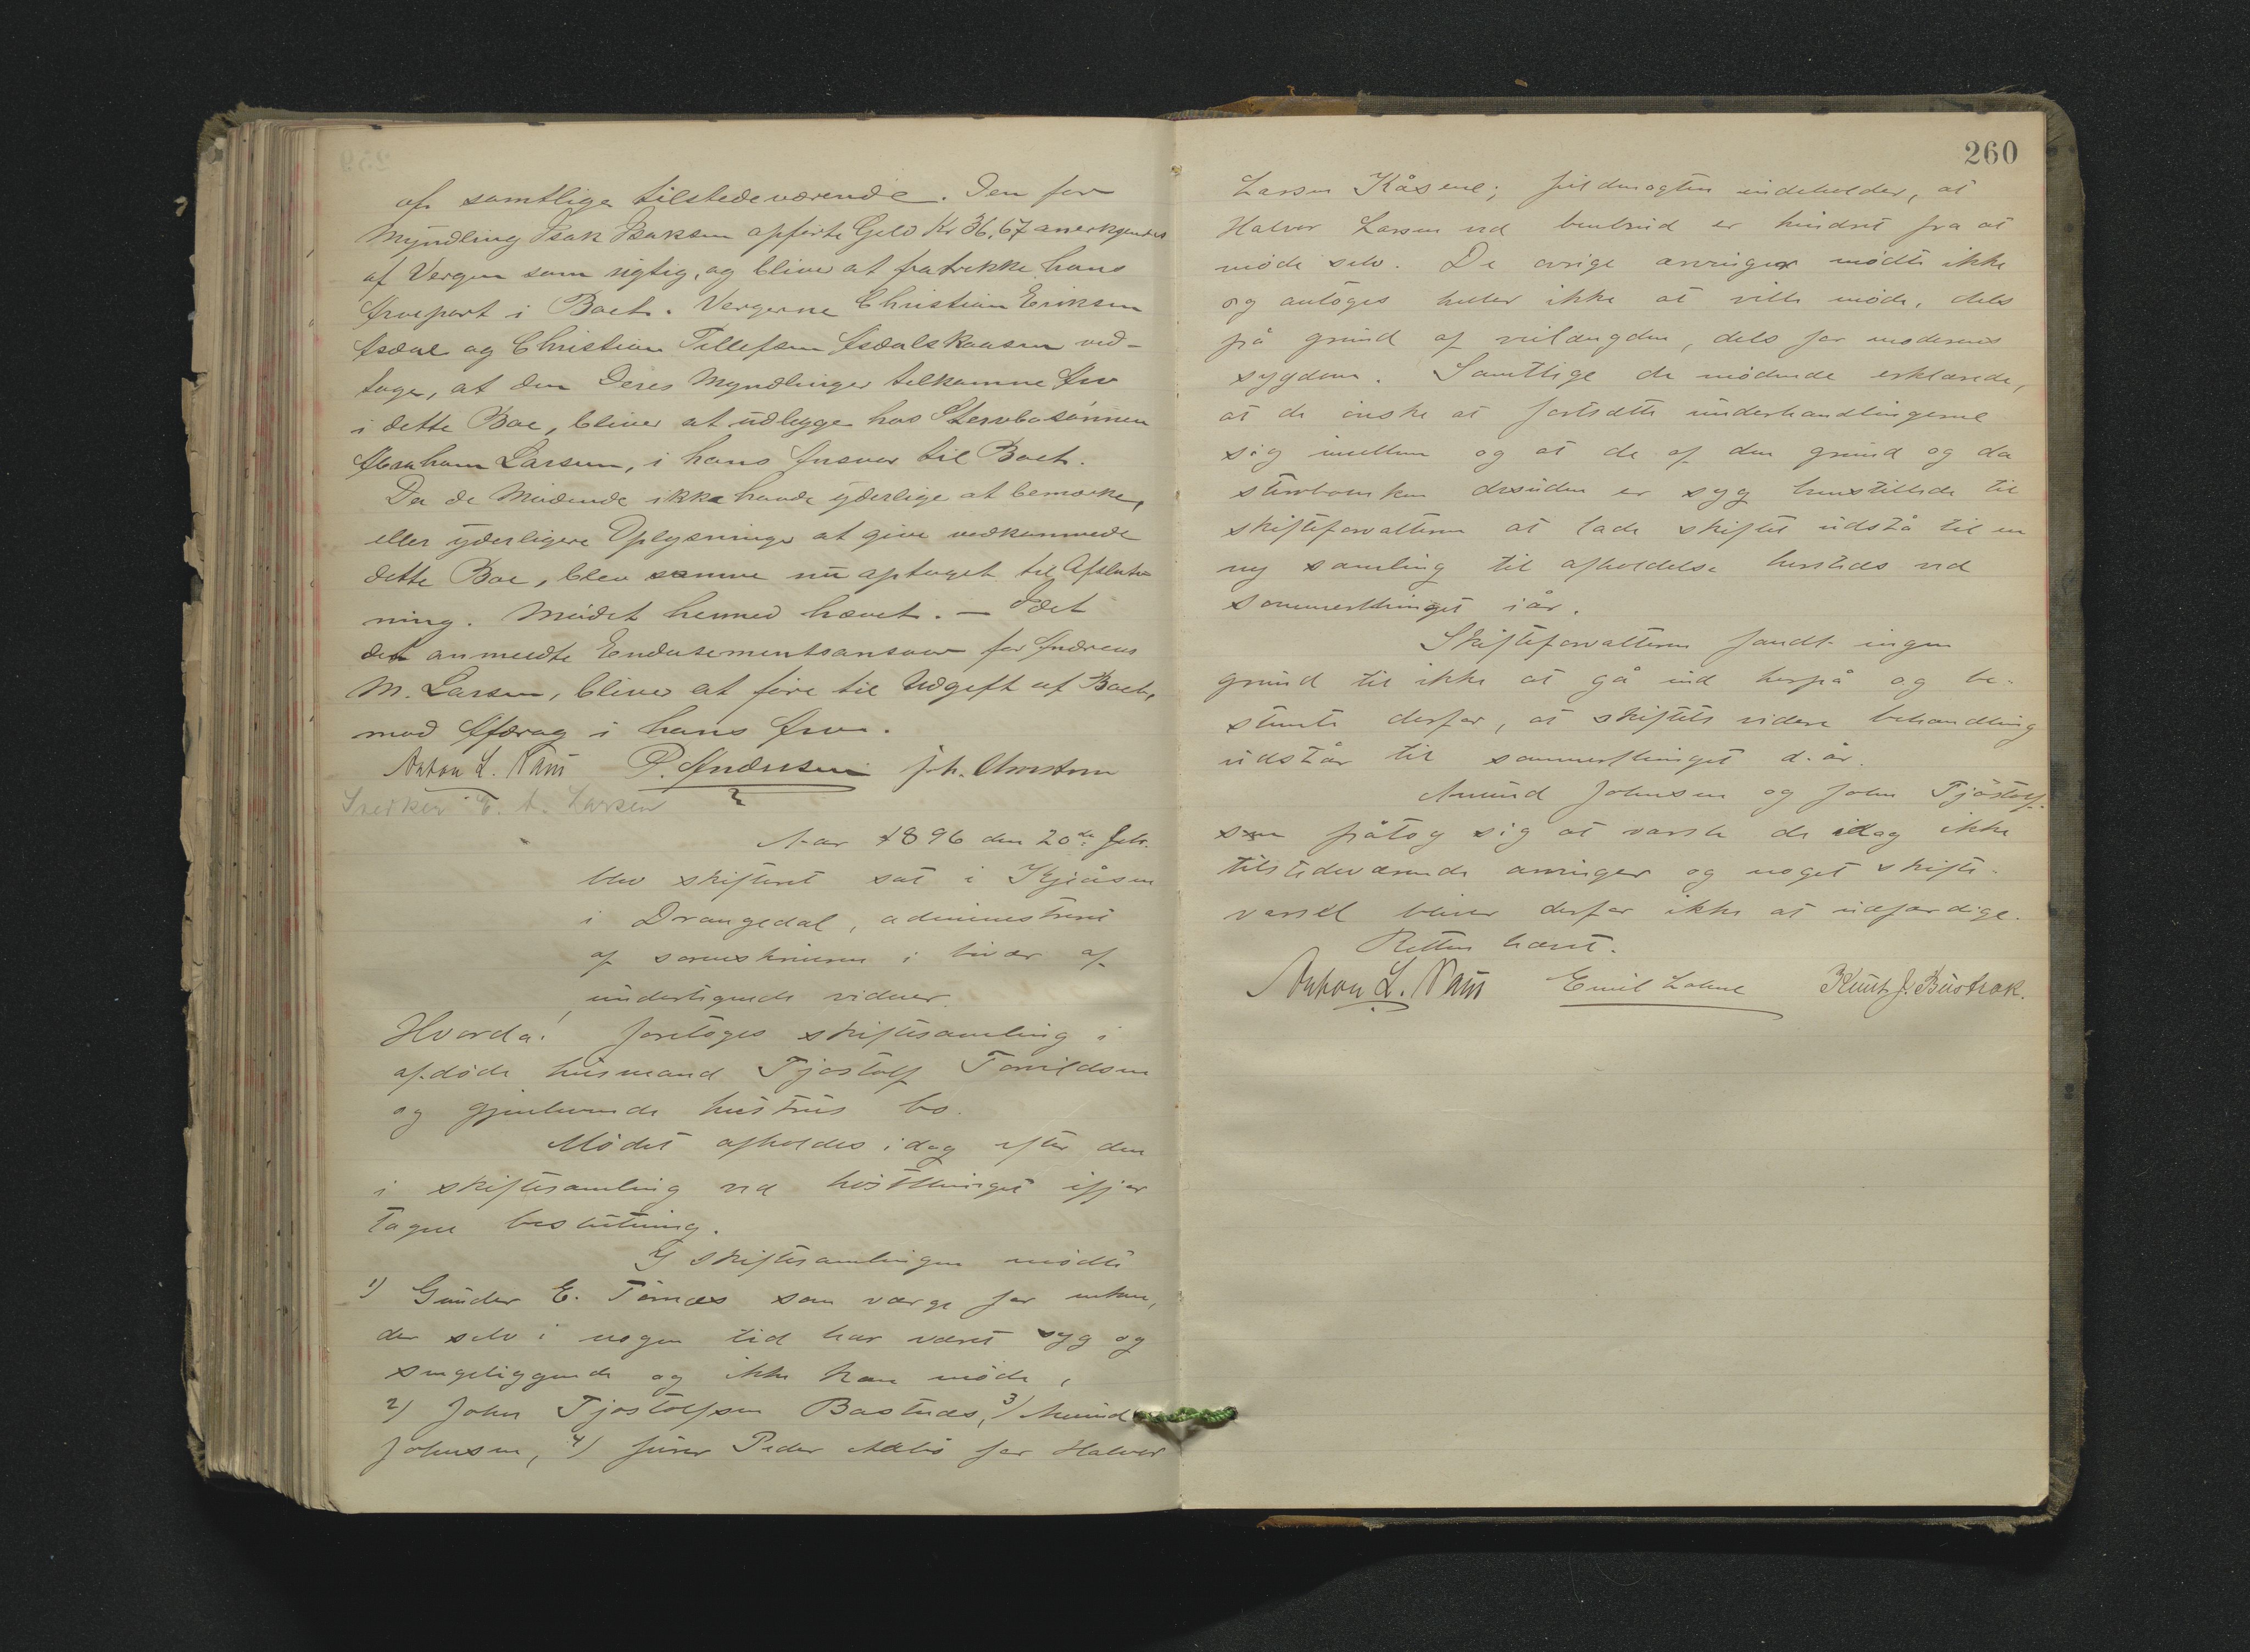 af samtlige tilstedeværende. Den for
Myndling Isak Isaksen opførte Gjeld Kr 36,67 anerkjendes
af Vergen som rigtig, og bliver at fratrekke hans
Arvepart i Boet. Vergerne Christian Eriksen
Asdal og Christian Tellefsen Asdalskaasen ved-
toge, at den Deres Myndlinger tilkomne Arv
i dette Boe, bliver at udlegge hos Stervbosønnen
Abraham Larsen, i hans Ansvar til Boet.
Da de Mødende ikke havde yderlige at bemærke,
eller yderligere Oplysninger at give vedkommende
dette Boe, blev samme nu optaget til Afslut-
ning. Mødet hermed hævet. — Idet
det anmeldte Endosementsansvar for Andreas
M. Larsen, bliver at føre til Udgift af Boet,
mod Afdrag i hans Arv.
Anton L. P. Andersen Joh.
E. A. Larsen
Aar 1896 den 20de febr.
blev skifteret sat i Kjeåsen
i Drangedal, administreret
af sorenskriveren i bivær af
undertegnede vidner.
Hvorda! foretoges skiftesamling i
afdøde husmand Tjostolf Tovildsen
og gjenlevende hustrus bo.
Mødet afholdes idag efter den
i skiftesamling ved høstthinget ifjor
tagne beslutning.
I skiftesamlingen mødte
1) Gunder E. Tørnæs som værge for enken,
der selv i nogen tid har været syg og
sengeliggende og ikke kan møde,
2) John Tjostolfsen Bastnes, 3) Amund
Johnsen, 4) Peder for Halvor
260
Larsen Kåsene; fuldmagten indeholder, at
Halvor Larsen ved benbrud er hindret fra at
møde selv. De øvrige arvinger mødte ikke
og antoges heller ikke at ville møde, dels
på grund af veilængden, dels for moderens
sygdom. Samtlige de mødende erklærede,
at de ønske at fortsætte underhandlingerne
sig imellem og at de af den grund og da
stervboenken desuden er syg henstillede til
skifteforvalteren at lade skiftet udstå til en
ny samling til afholdelse hersteds ved
sommerthinget iår.
Skifteforvalteren fandt ingen
grund til ikke at gå ind herpå og be-
stemte derfor, at skiftets videre behandling
udstår til sommerthinget d. år.
Amund Johnsen og John Tjøstolf-
sen påtog sig at varsle de idag ikke
tilstedeværende arvinger og noget skifte-
varsel bliver derfor ikke at udfærdige.
Retten hævet.
Anton L. Emil Lohne Knut J. Bustrak.